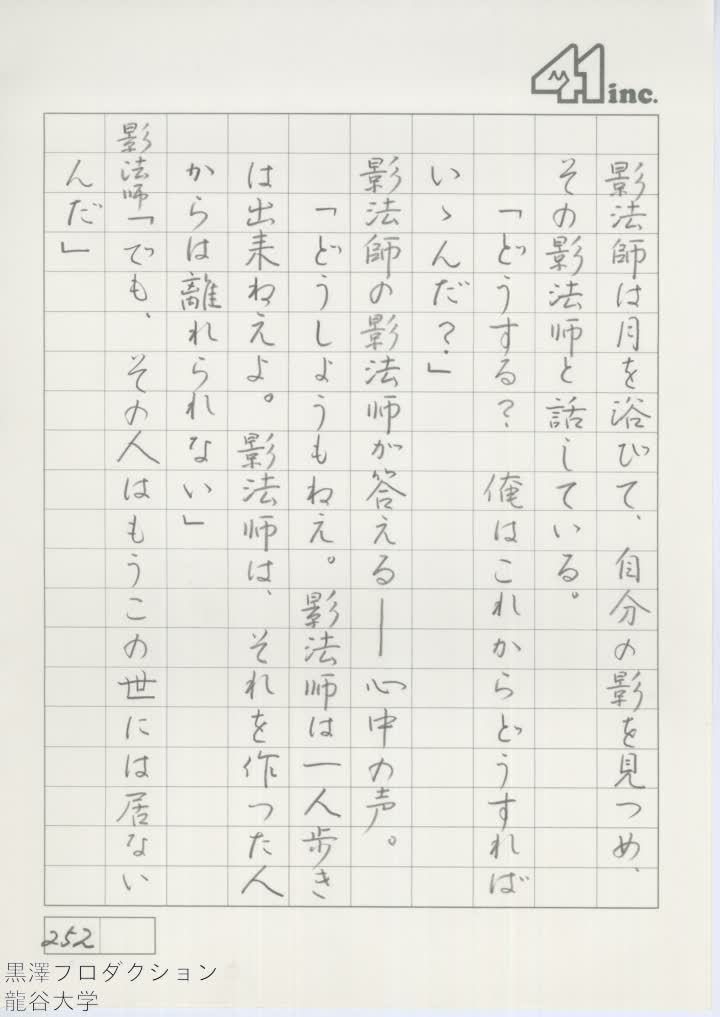 41 inc.
影法師は月を浴びて、自分の影を見つめ、
その影法師と話している。
「どうする？　俺はこれからどうすれば
いゝんだ？」
影法師の影法師が答える──心中の声。
「どうしようもねえ。影法師は一人歩き
は出来ねえよ。影法師は、それを作った人
からは離れられない」
影法師「でも、その人はもうこの世には居ない
んだ」
252
黒澤プロダクション
龍谷大学